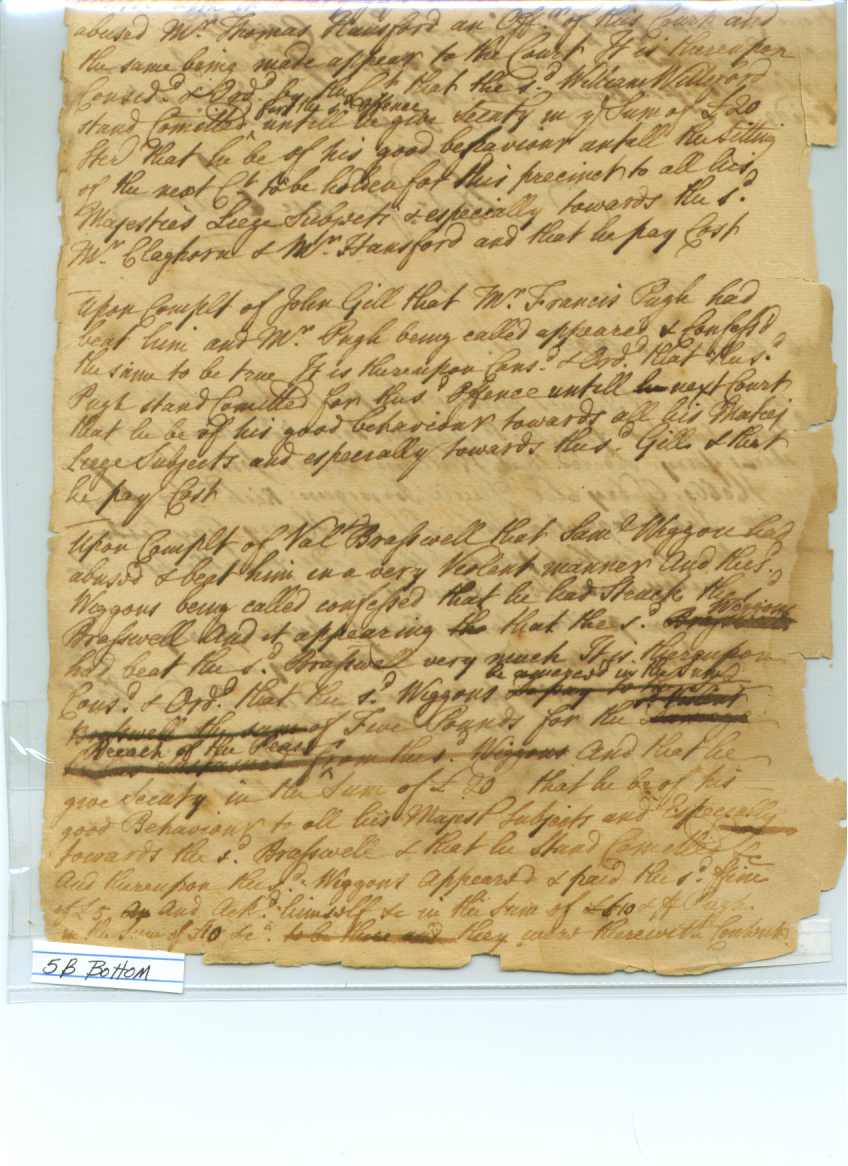 abused Mr. Thomas Hansford an Offr. of this Court and
the same being made appear to the Court It is thereupon
Consd. & Ord. by the Ct that the sd. William Williford
for the sd. offence
stand Comitted untill he give Security in ye Sum of £20
Ster that he be of his good behaviour untill the Sitting
of the next Ct to be holden for this precinct to all his
Majesties Liege Subjects & especially towards the sd.
Mr. Claghorn & Mr. Hansford and that he pay Cost
Upon Complt of John Gill that Mr. Francis Pugh had
beat him and Mr. Pugh being called appeared & Confess'd
the same to be true It is thereupon Cons.d & Ord.d that the sd.
Pugh stand Comitted for the sd. Offence untill he next Court
that he be of his good behaviour towards all his Maties
Liege Subjects and especially towards the sd. Gill & that
he pay Cost
Upon Complt of Valt Brasswell that Saml Wiggon had
abused & beat him in a very Violent manner And the sd.
Wiggons being called confessed that he had Struck the
Wiggons
Brasswell And it appearing the that the sd. Brasswell
had beat the sd. Brasswell very much It is thereupon
be amerced in the Sum
Cons.d & Ord.d that the sd. Wiggons to pay to
Brasswell the sum of Five Pounds for the
Breach of the Peace
from the sd. Wiggons And that he
give Security in the Sum of £20 that he be of his
good Behaviour to all his Majest Subjects and Especially
towards the sd. Brasswell & that he stand Comitted &c
And thereupon the sd. Wiggons Appeared & paid the sd. fine
of £5 And Ackd. himself &c in the Sum of £10 &
in the Sum of £10 &c. to be there and they were therewith Content
5B Bottom